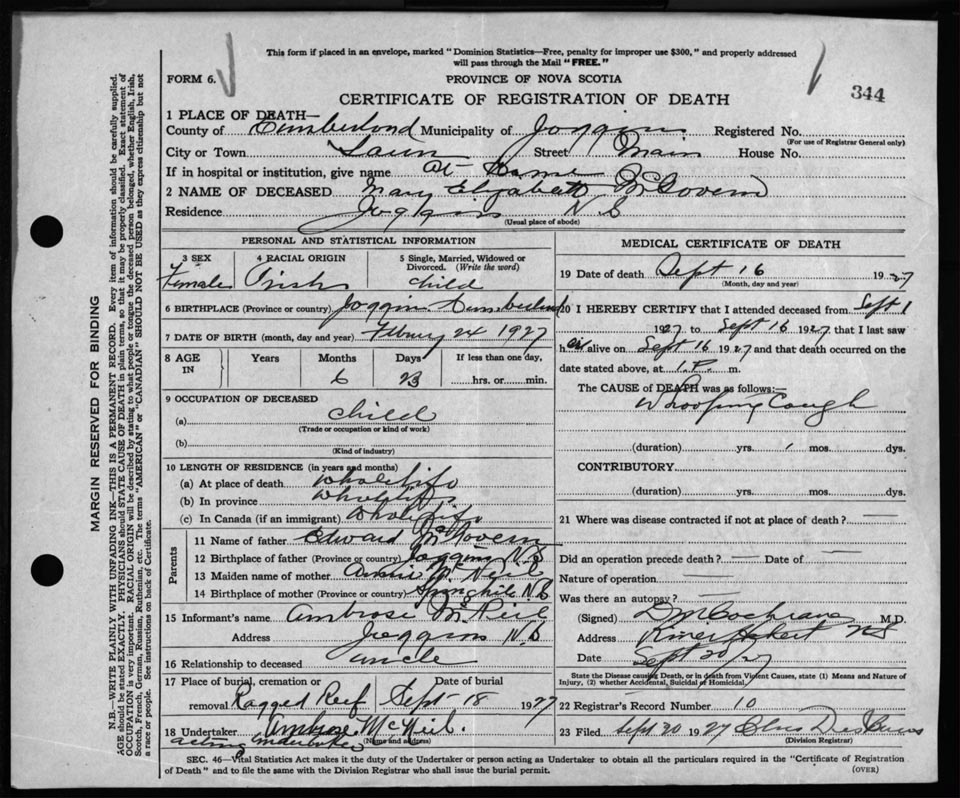 This form if placed in an envelope, marked "Dominion Statistics—Free, penalty for improper use $300," and properly addressed
will pass through the Mail "FREE."
FORM 6.
PROVINCE OF NOVA SCOTIA
344
CERTIFICATE OF REGISTRATION OF DEATH
1 PLACE OF DEATH—
County of Cumberland Municipality of Joggins Registered No.
(For use of Registrar General only)
City or Town Street Main House No.
If in hospital or institution, give name At Home
2 NAME OF DECEASED Mary Elizabeth McGovern
Residence Joggins N S
(Usual place of abode)
PERSONAL AND STATISTICAL INFORMATION
3 SEX Female
4 RACIAL ORIGIN Irish
5 Single, Married, Widowed or Divorced. (Write the word) child
6 BIRTHPLACE (Province or country) Joggins Cumberland
7 DATE OF BIRTH (month, day and year) 24 1927
8 AGE IN Years Months Days If less than one day,
6 23 hrs. or min.
9 OCCUPATION OF DECEASED
(a) child
(Trade or occupation or kind of work)
(b)
(Kind of industry)
10 LENGTH OF RESIDENCE (in years and months)
(a) At place of death whole life
(b) In province whole life
(c) In Canada (if an immigrant) whole life
Parents
11 Name of father Edward McGovern
12 Birthplace of father (Province or country) Joggins N.S
13 Maiden name of mother Annie McNeil
14 Birthplace of mother (Province or country) Springhill N.S
15 Informant's name Ambrose McNeil
Address Joggins N.S
16 Relationship to deceased uncle
17 Place of burial, cremation or removal Ragged Reef
Date of burial Sept 18 1927
18 Undertaker Ambrose McNeil.
acting undertaker (Name and address)
MEDICAL CERTIFICATE OF DEATH
19 Date of death Sept 16 1927
(Month, day and year)
20 I HEREBY CERTIFY that I attended deceased from Sept 1
1927 to Sept 16 1927 that I last saw
her alive on Sept 16 1927 and that death occurred on the
date stated above, at 1 P. m.
The CAUSE of DEATH was as follows:—
Whooping Cough
(duration) yrs. 1 mos. dys.
CONTRIBUTORY
(duration) yrs. mos. dys.
21 Where was disease contracted if not at place of death?
Did an operation precede death? Date of
Nature of operation
Was there an autopsy?
(Signed) D M Cochrane M.D.
Address River Hebert N S
Date Sept 20/27
State the Disease causing Death, or in death from Violent Causes, state (1) Means and Nature of
Injury, (2) whether Accidental, Suicidal or Homicidal.
22 Registrar's Record Number 10
23 Filed Sept 20 1927
(Division Registrar)
SEC. 46—Vital Statistics Act makes it the duty of the Undertaker or person acting as Undertaker to obtain all the particulars required in the "Certificate of Registration
of Death" and to file the same with the Division Registrar who shall issue the burial permit.
(OVER)
MARGIN RESERVED FOR BINDING
N.B.—WRITE PLAINLY WITH UNFADING INK—THIS IS A PERMANENT RECORD. Every item of information should be carefully supplied.
AGE should be stated EXACTLY. PHYSICIANS should STATE CAUSE OF DEATH in plain terms, so that it may be properly classified. Exact statement of
OCCUPATION is very important. RACIAL ORIGIN will be described by stating to what people or tongue the deceased person belonged, whether English, Irish,
Scotch, French, German, Russian, Ruthenian, etc. The terms "AMERICAN" or "CANADIAN" SHOULD NOT BE USED as they express citizenship but not
a race or people. See instructions on back of Certificate.